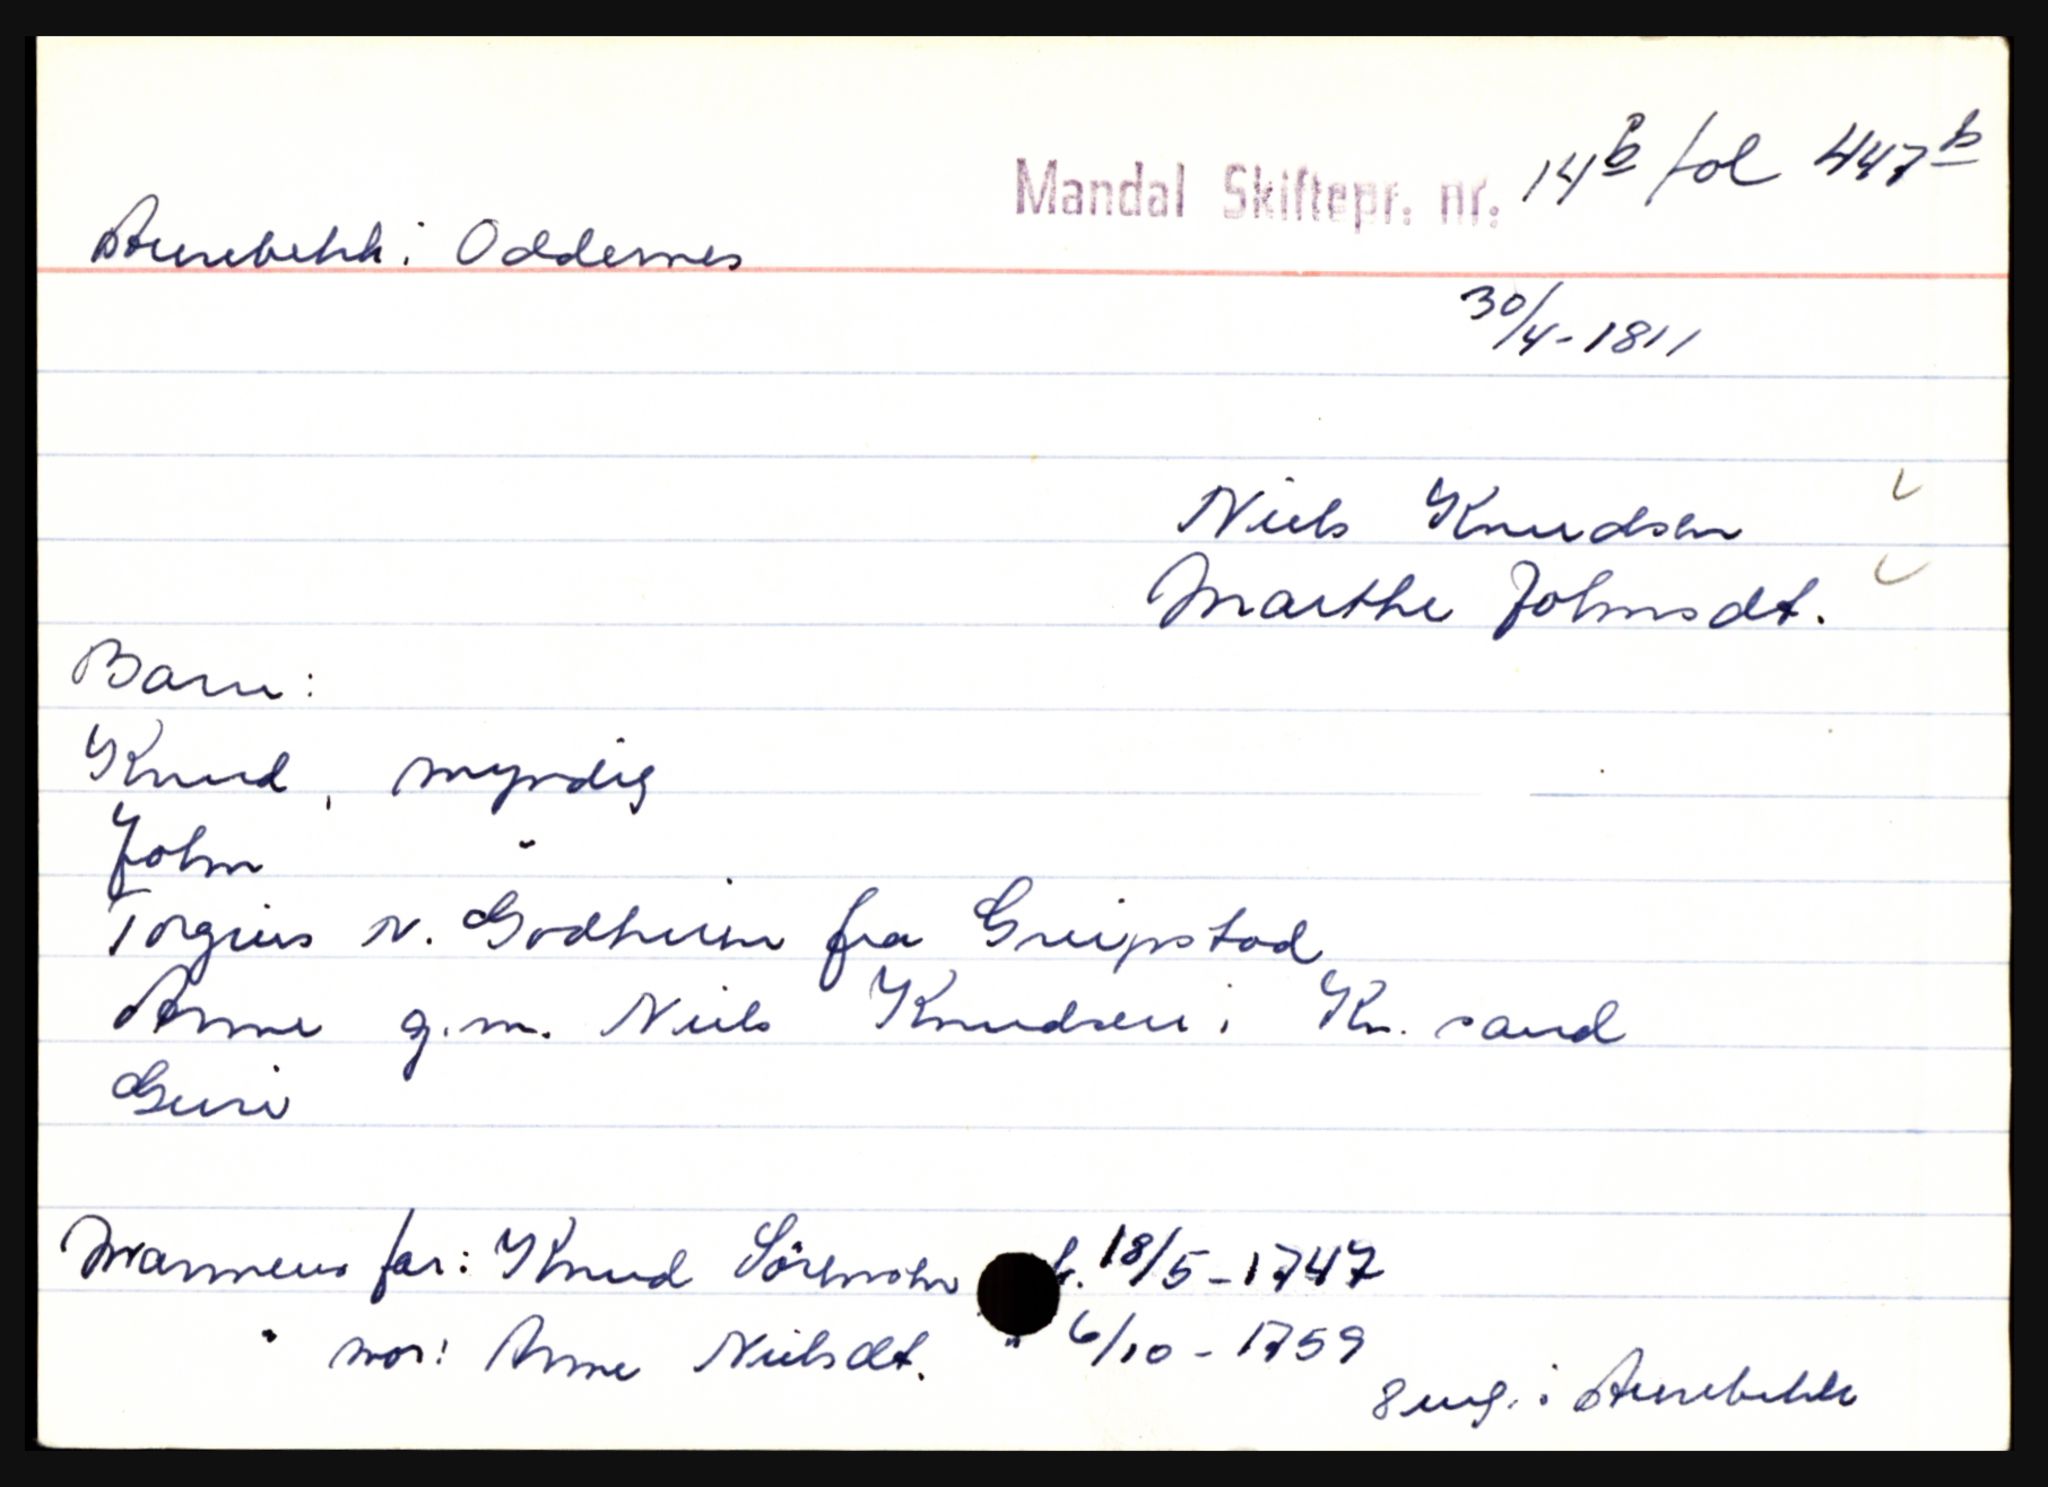 Mandal Skiftepr. nr. 14b fol 447b
Aurebekk i Oddernes
30/4-1811
Niels Knudsen
Marthe Johnsdt.
Barn:
Knud, myndig
John "
Torgius v. Godheim fra Greipstad
Anne g.m. Niels Knudsen i Kr. sand
Guri
Mannens far: Knud Sörensen b. 18/5-1747
" mor: Anne Nielsdt. " 6/10-1759
i Aurebekk